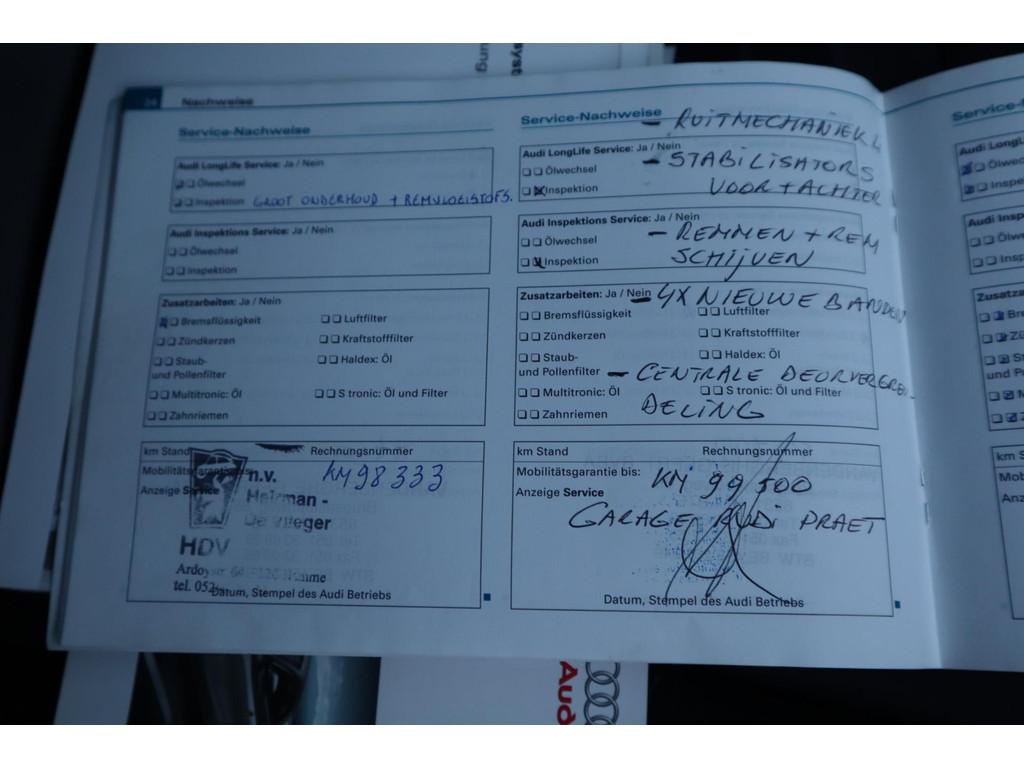 24 Nachweise
Service-Nachweise
Audi LongLife Service: Ja / Nein
Ölwechsel
Inspektion GROOT ONDERHOUD + REMVLOEISTOFS.
Audi Inspektions Service: Ja / Nein
Ölwechsel
Inspektion
Zusatzarbeiten: Ja / Nein
Bremsflüssigkeit
Luftfilter
Zündkerzen
Kraftstofffilter
Staub-
und Pollenfilter
Haldex: Öl
Multitronic: Öl
S tronic: Öl und Filter
Zahnriemen
km Stand
Rechnungsnummer
Mobilitätsgarantie bis:
KM 98333
Anzeige Service
n.v.
De Vlieger
HDV
tel. 052
Datum, Stempel des Audi Betriebs
Service-Nachweise
- RUITMECHANIEK
Audi LongLife Service: Ja / Nein
- STABILISATORS
Ölwechsel
VOOR + ACHTER
Inspektion
Audi Inspektions Service: Ja / Nein
Ölwechsel
- REMMEN + REM
Inspektion
SCHIJVEN
Zusatzarbeiten: Ja / Nein
- 4X NIEUWE BANDEN
Bremsflüssigkeit
Luftfilter
Zündkerzen
Kraftstofffilter
Staub-
und Pollenfilter
Haldex: Öl
- CENTRALE DEURVERGREN-
Multitronic: Öl
S tronic: Öl und Filter
DELING
Zahnriemen
km Stand
Rechnungsnummer
Mobilitätsgarantie bis:
KM 99500
Anzeige Service
GARAGE AUDI PRAET
Datum, Stempel des Audi Betriebs
Service-N
Audi LongL
Ölwec
Inspek
Audi Insp
Ölwe
Insp
Zusatza
Bre
Zü
St
und Po
M
Z
km S
Mob
Anz
syst
ung
Audi